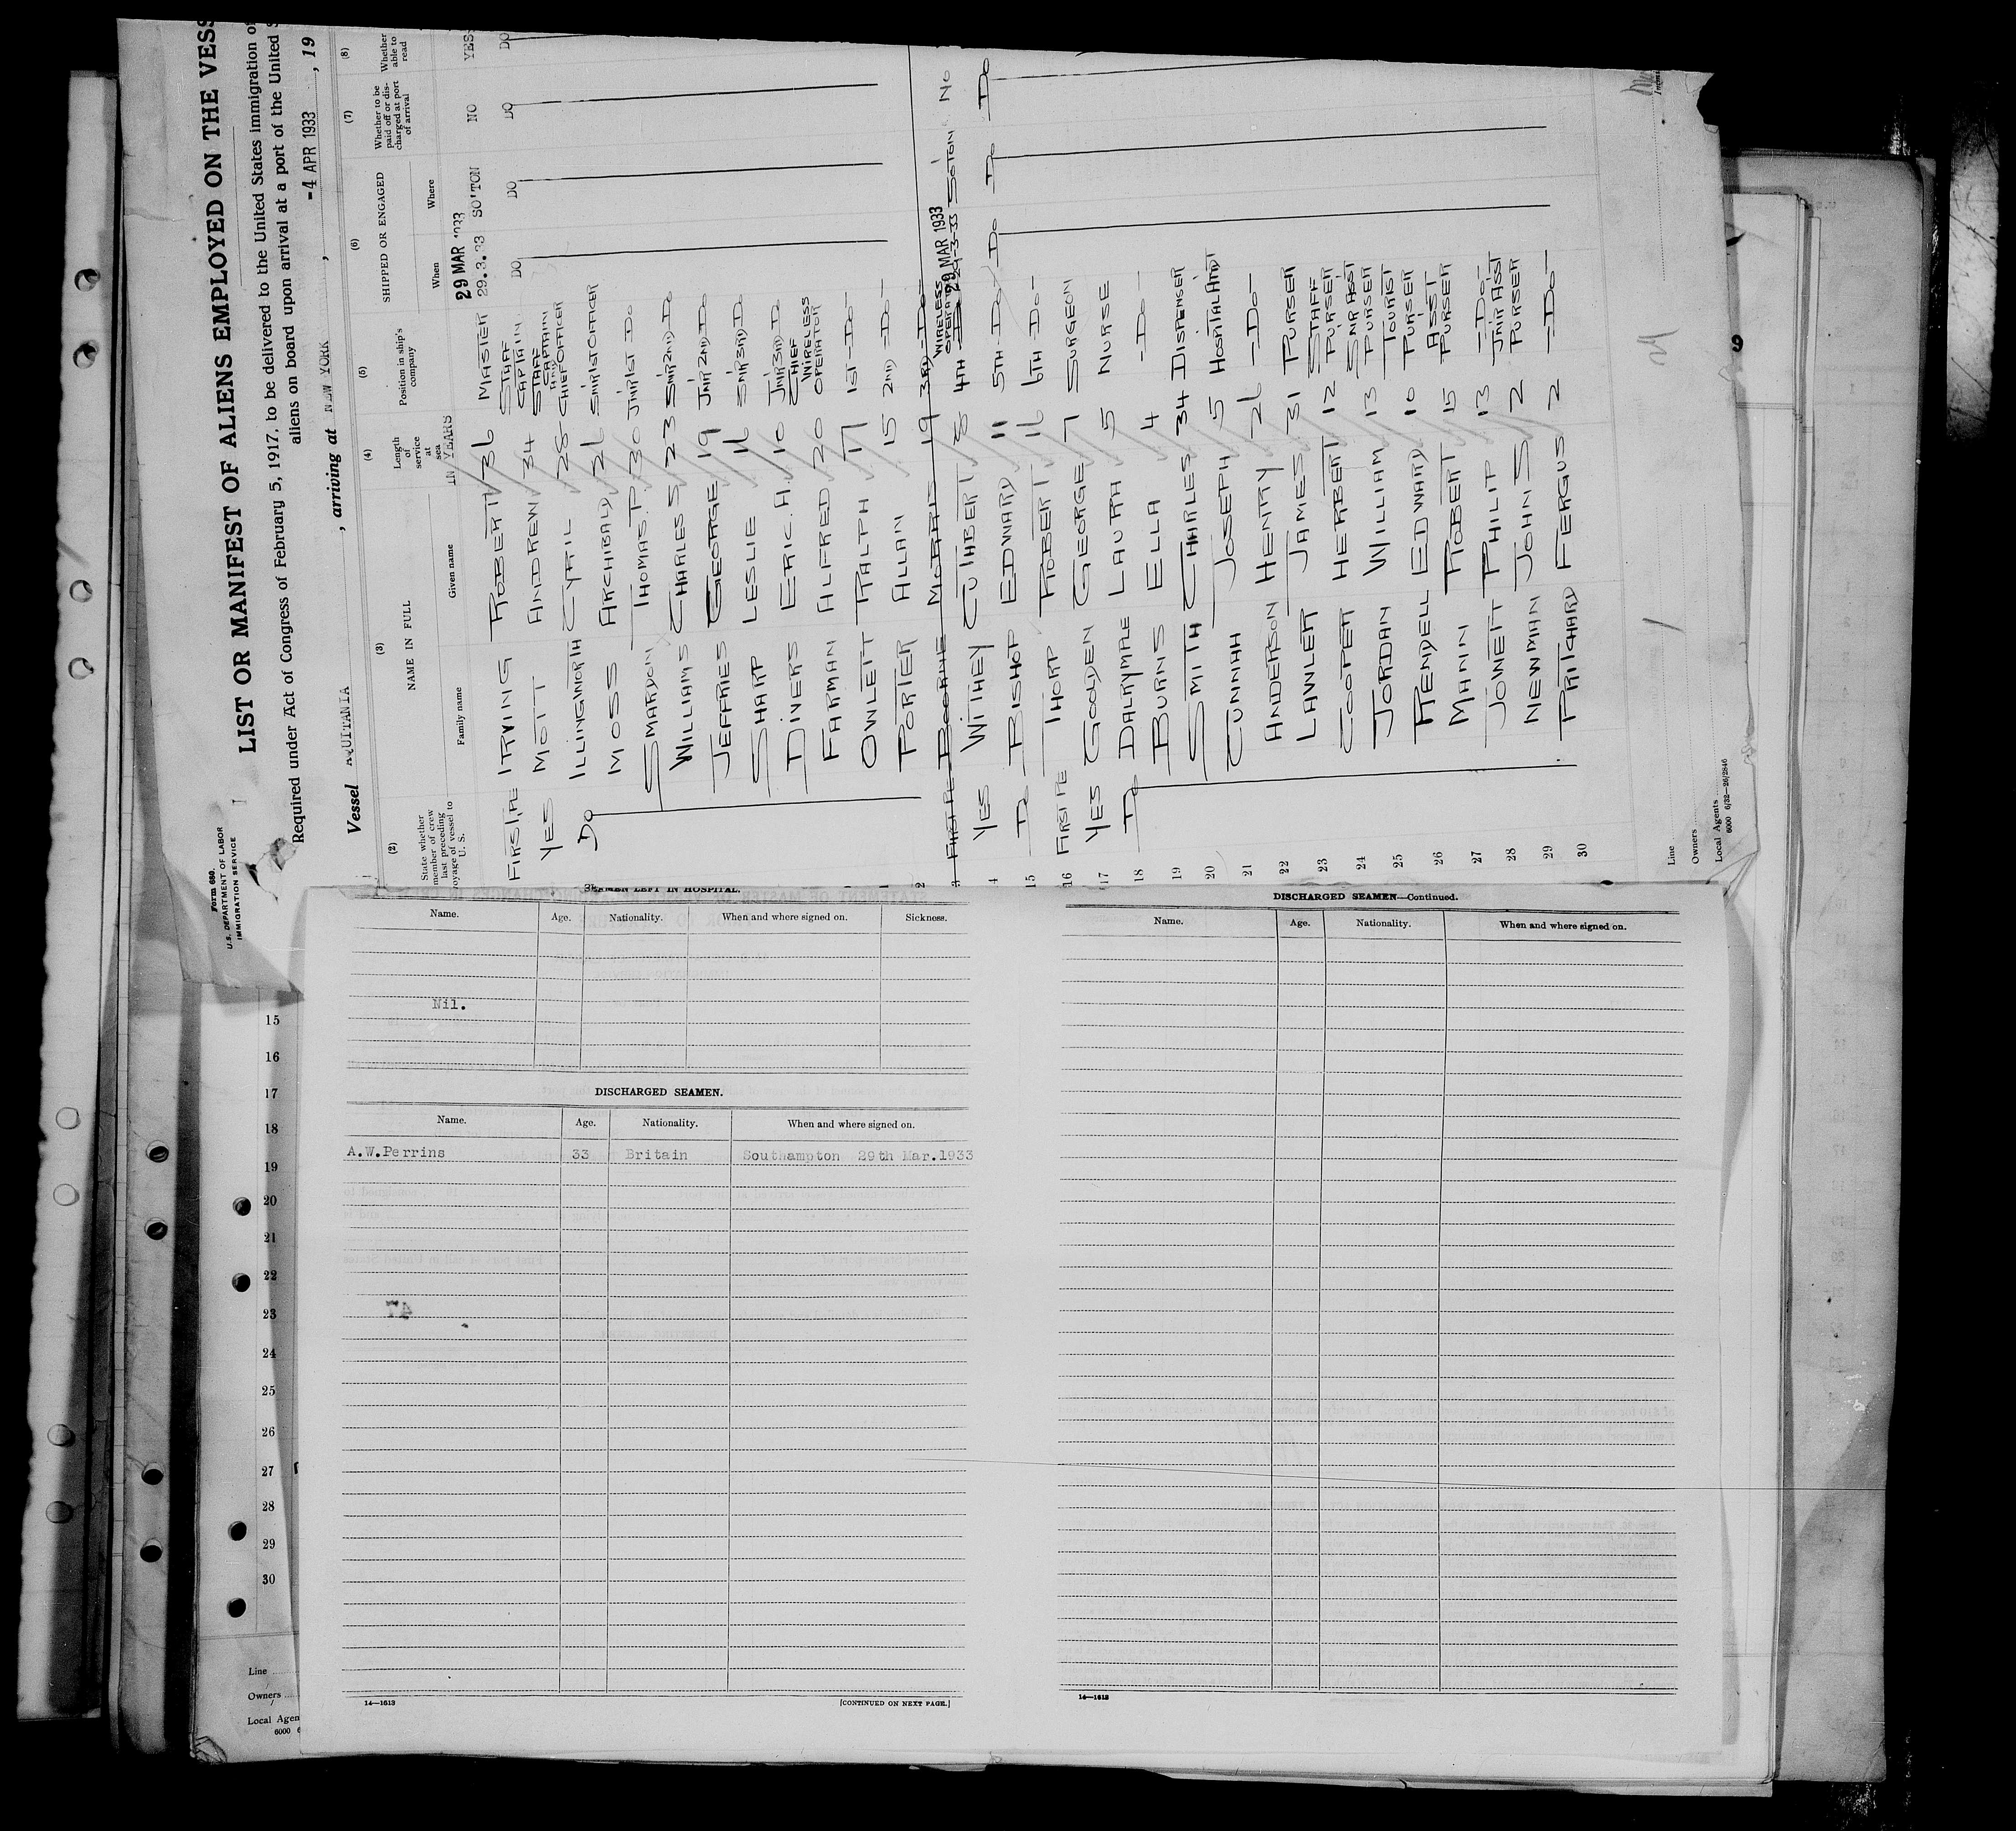 Form 680
U.S. DEPARTMENT OF LABOR
IMMIGRATION SERVICE
LIST OR MANIFEST OF ALIENS EMPLOYED ON THE VESS
Required under Act of Congress of February 5, 1917, to be delivered to the United States immigration of
aliens on board upon arrival at a port of the United S
Vessel AQUITANIA , arriving at NEW YORK , -4 APR 1933 , 19
(2) (3) (4) (5) (6) (7) (8)
State whether member of crew last preceding voyage of vessel to U. S.
NAME IN FULL
Family name Given name
Length of service at sea
IN YEARS
Position in ship's company
SHIPPED OR ENGAGED
When Where
Whether to be paid off or discharged at port of arrival
Whether able to read
29 MAR 1933
FIRST TRE IRVING ROBERT 36 MASTER 29.3.33 SO'TON NO YES
YES MOTT ANDREW 34 STAFF CAPTAIN DO DO DO DO
DO ILLINGWORTH CYRIL 28 STAFF CAPTAIN AND CHIEF OFFICER
MOSS ARCHIBALD 26 SNR 1ST OFFICER
SMARDON THOMAS. P. 30 JNR 1ST DO
WILLIAMS CHARLES S 23 SNR 2ND DO
JEFFRIES GEORGE 19 JNR 2ND DO
SHARP LESLIE 16 SNR 3RD DO
DIVERS ERIC. A. 10 JNR 3RD DO
FARMAN ALFRED 20 CHIEF WIRELESS OPERATOR
OWLETT RALPH 17 1ST -DO-
PORTER ALLAN 15 2ND -DO-
FIRST TRE BOORNE MORRIS 19 3RD -DO-
YES WITHEY CUTHBERT 8 4TH WIRELESS OPERATOR 29 MAR 1933 29-3-33 SOTON NO
DO BISHOP EDWARD 11 5TH -DO- DO DO DO
FIRST TRE THORP ROBERT 16 6TH -DO-
YES GOOLDEN GEORGE 7 SURGEON
17 DO DALRYMPLE LAURA 5 NURSE
18 BURNS ELLA 4 -DO-
19 SMITH CHARLES 34 DISPENSER
20 CUNNAH JOSEPH 5 HOSPITAL ANDT
21 ANDERSON HENRY 26 -DO-
22 LAWLER JAMES 31 PURSER
23 COOPER HERBERT 12 STAFF PURSER
24 JORDAN WILLIAM 13 SNR ASST PURSER
25 RENDELL EDWARD 10 TOURIST PURSER
26 MANN ROBERT 15 ASST PURSER
27 JOWETT PHILIP 13 -DO-
28 NEWMAN JOHN S 2 JNR ASST PURSER
29 PRITCHARD FERGUS 2 -DO-
30
Line
Owners
Local Agents
6000 6/32-26/2846
SEAMEN LEFT IN HOSPITAL.
Name. Age. Nationality. When and where signed on. Sickness.
Nil.
DISCHARGED SEAMEN.
Name. Age. Nationality. When and where signed on.
A.W.Perrins 33 Britain Southampton 29th Mar.1933
14—1613 [CONTINUED ON NEXT PAGE.]
DISCHARGED SEAMEN—Continued.
Name. Age. Nationality. When and where signed on.
14—1613
15
16
17
18
19
20
21
22
23
24
25
26
27
28
29
30
Line
Owners
Local Agen
6000 6
9